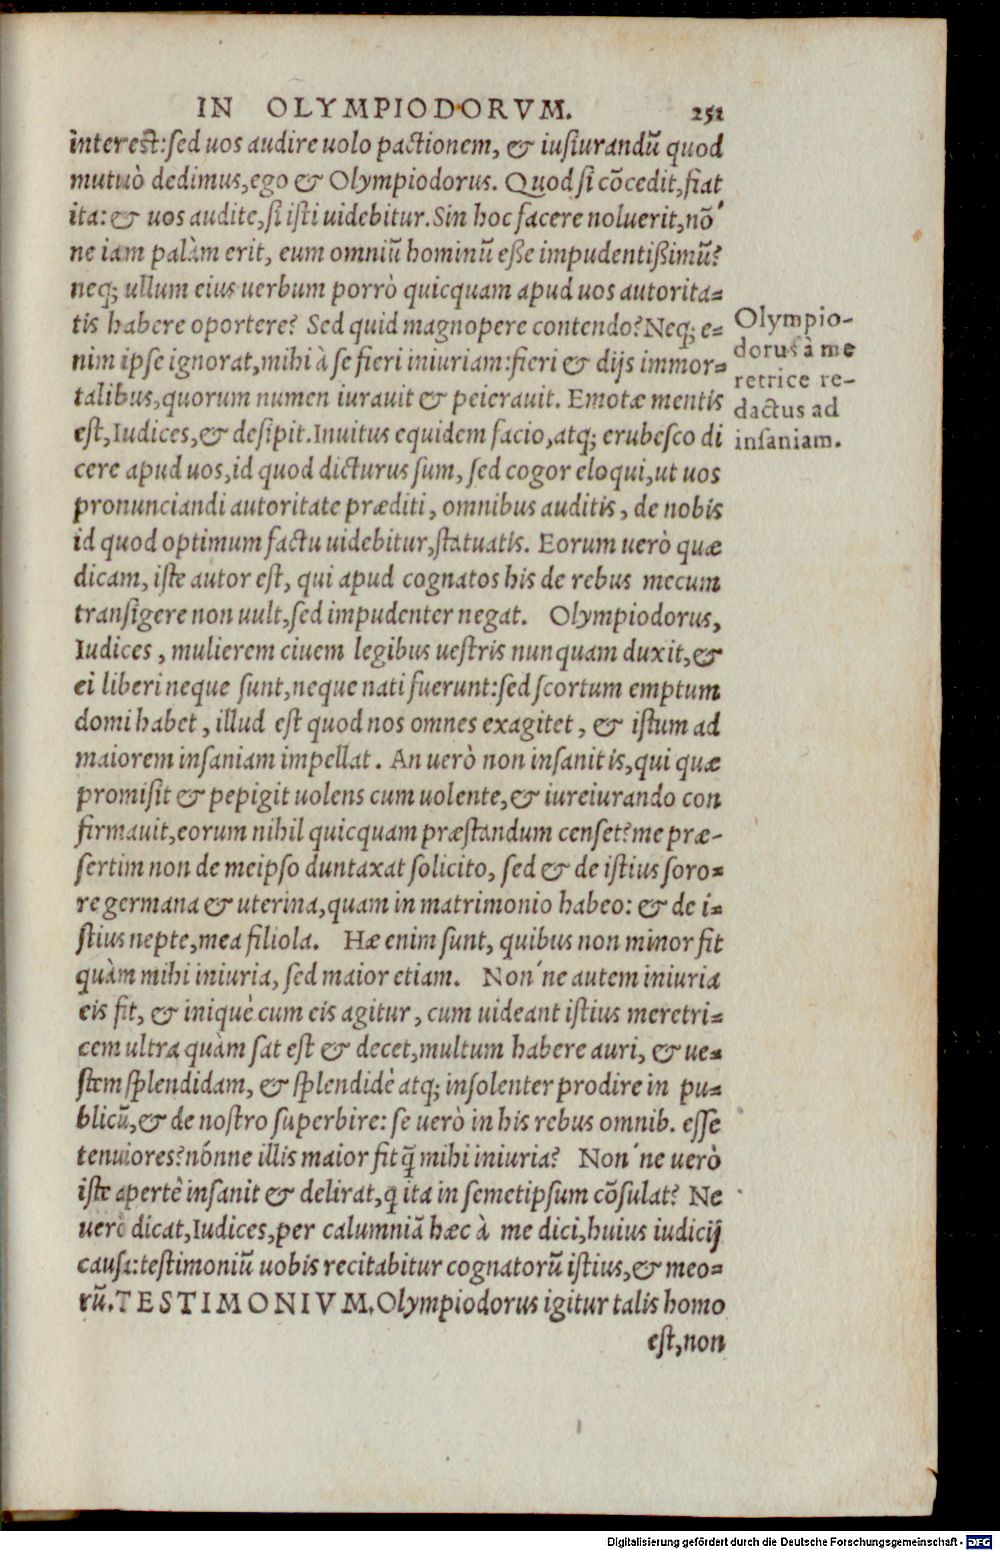 IN OLYMPIODORVM. 251
interest: sed uos audire uolo pactionem, & iusiurandū quod
mutuò dedimus, ego & Olympiodorus. Quod si cōcedit, fiat
ita: & uos audite, si isti uidebitur. Sin hoc facere noluerit, nō'
ne iam palàm erit, eum omniū hominū esse impudentißimū?
neq; ullum eius uerbum porrò quicquam apud uos autorita=
tis habere oportere? Sed quid magnopere contendo? Neq; e=
nim ipse ignorat, mihi à se fieri iniuriam: fieri & dijs immor=
talibus, quorum numen iurauit & peierauit. Emotæ mentis
est, Iudices, & desipit. Inuitus equidem facio, atq; erubesco di
cere apud uos, id quod dicturus sum, sed cogor eloqui, ut uos
pronunciandi autoritate præditi, omnibus auditis, de nobis
id quod optimum factu uidebitur, statuatis. Eorum uerò quæ
dicam, iste autor est, qui apud cognatos his de rebus mecum
transigere non uult, sed impudenter negat. Olympiodorus,
Iudices, mulierem ciuem legibus uestris nunquam duxit, &
ei liberi neque sunt, neque nati fuerunt: sed scortum emptum
domi habet, illud est quod nos omnes exagitet, & istum ad
maiorem insaniam impellat. An uerò non insanit is, qui quæ
promisit & pepigit uolens cum uolente, & iureiurando con
firmauit, eorum nihil quicquam præstandum censet? me præ-
sertim non de meipso duntaxat solicito, sed & de istius soro=
re germana & uterina, quam in matrimonio habeo: & de i=
stius nepte, mea filiola. Hæ enim sunt, quibus non minor fit
quàm mihi iniuria, sed maior etiam. Non´ne autem iniuria
eis fit, & iniquè cum eis agitur, cum uideant istius meretri=
cem ultra quàm sat est & decet, multum habere auri, & ue=
stem splendidam, & splendidè atq; insolenter prodire in pu=
blicū, & de nostro superbire: se uerò in his rebus omnib. esse
tenuiores? nónne illis maior fit q̃ mihi iniuria? Non´ne uerò
iste apertè insanit & delirat, q ita in semetipsum cōsulat? Ne
uerò dicat, Iudices, per calumniā hæc à me dici, huius iudicij
causa: testimoniū uobis recitabitur cognatorū istius, & meo=
rū. TESTIMONIVM. Olympiodorus igitur talis homo
est, non
Olympio-
dorus à me
retrice re-
dactus ad
insaniam.
Digitalisierung gefördert durch die Deutsche Forschungsgemeinschaft - DFG